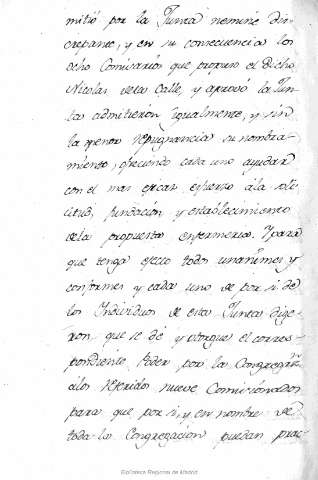 mitió por la Junta nemine dis-
crepante, y en su consecuencia los
ocho Comisarios que propuso el dicho
Nicolas dela Calle, y aprovó la Jun-
ta admitieron igualmente, y sin
la menor repugnancia su nombra-
miento, ofreciendo cada uno ayudar
con el mas eficaz esfuerzo àla soli-
citud, fundación y establecimiento
dela propuesta enfermeria. Ypara
que tenga efecto todos unanimes y
conformes y cada uno de por si de
los Individuos de esta Junta dige-
ron, que se dé y otorgue el corres-
pondiente Poder por la Congregn.
alos referidos nueve Comisionados
para que por si, y en nombre de
toda la Congregacion puedan prac-
Biblioteca Regional de Madrid